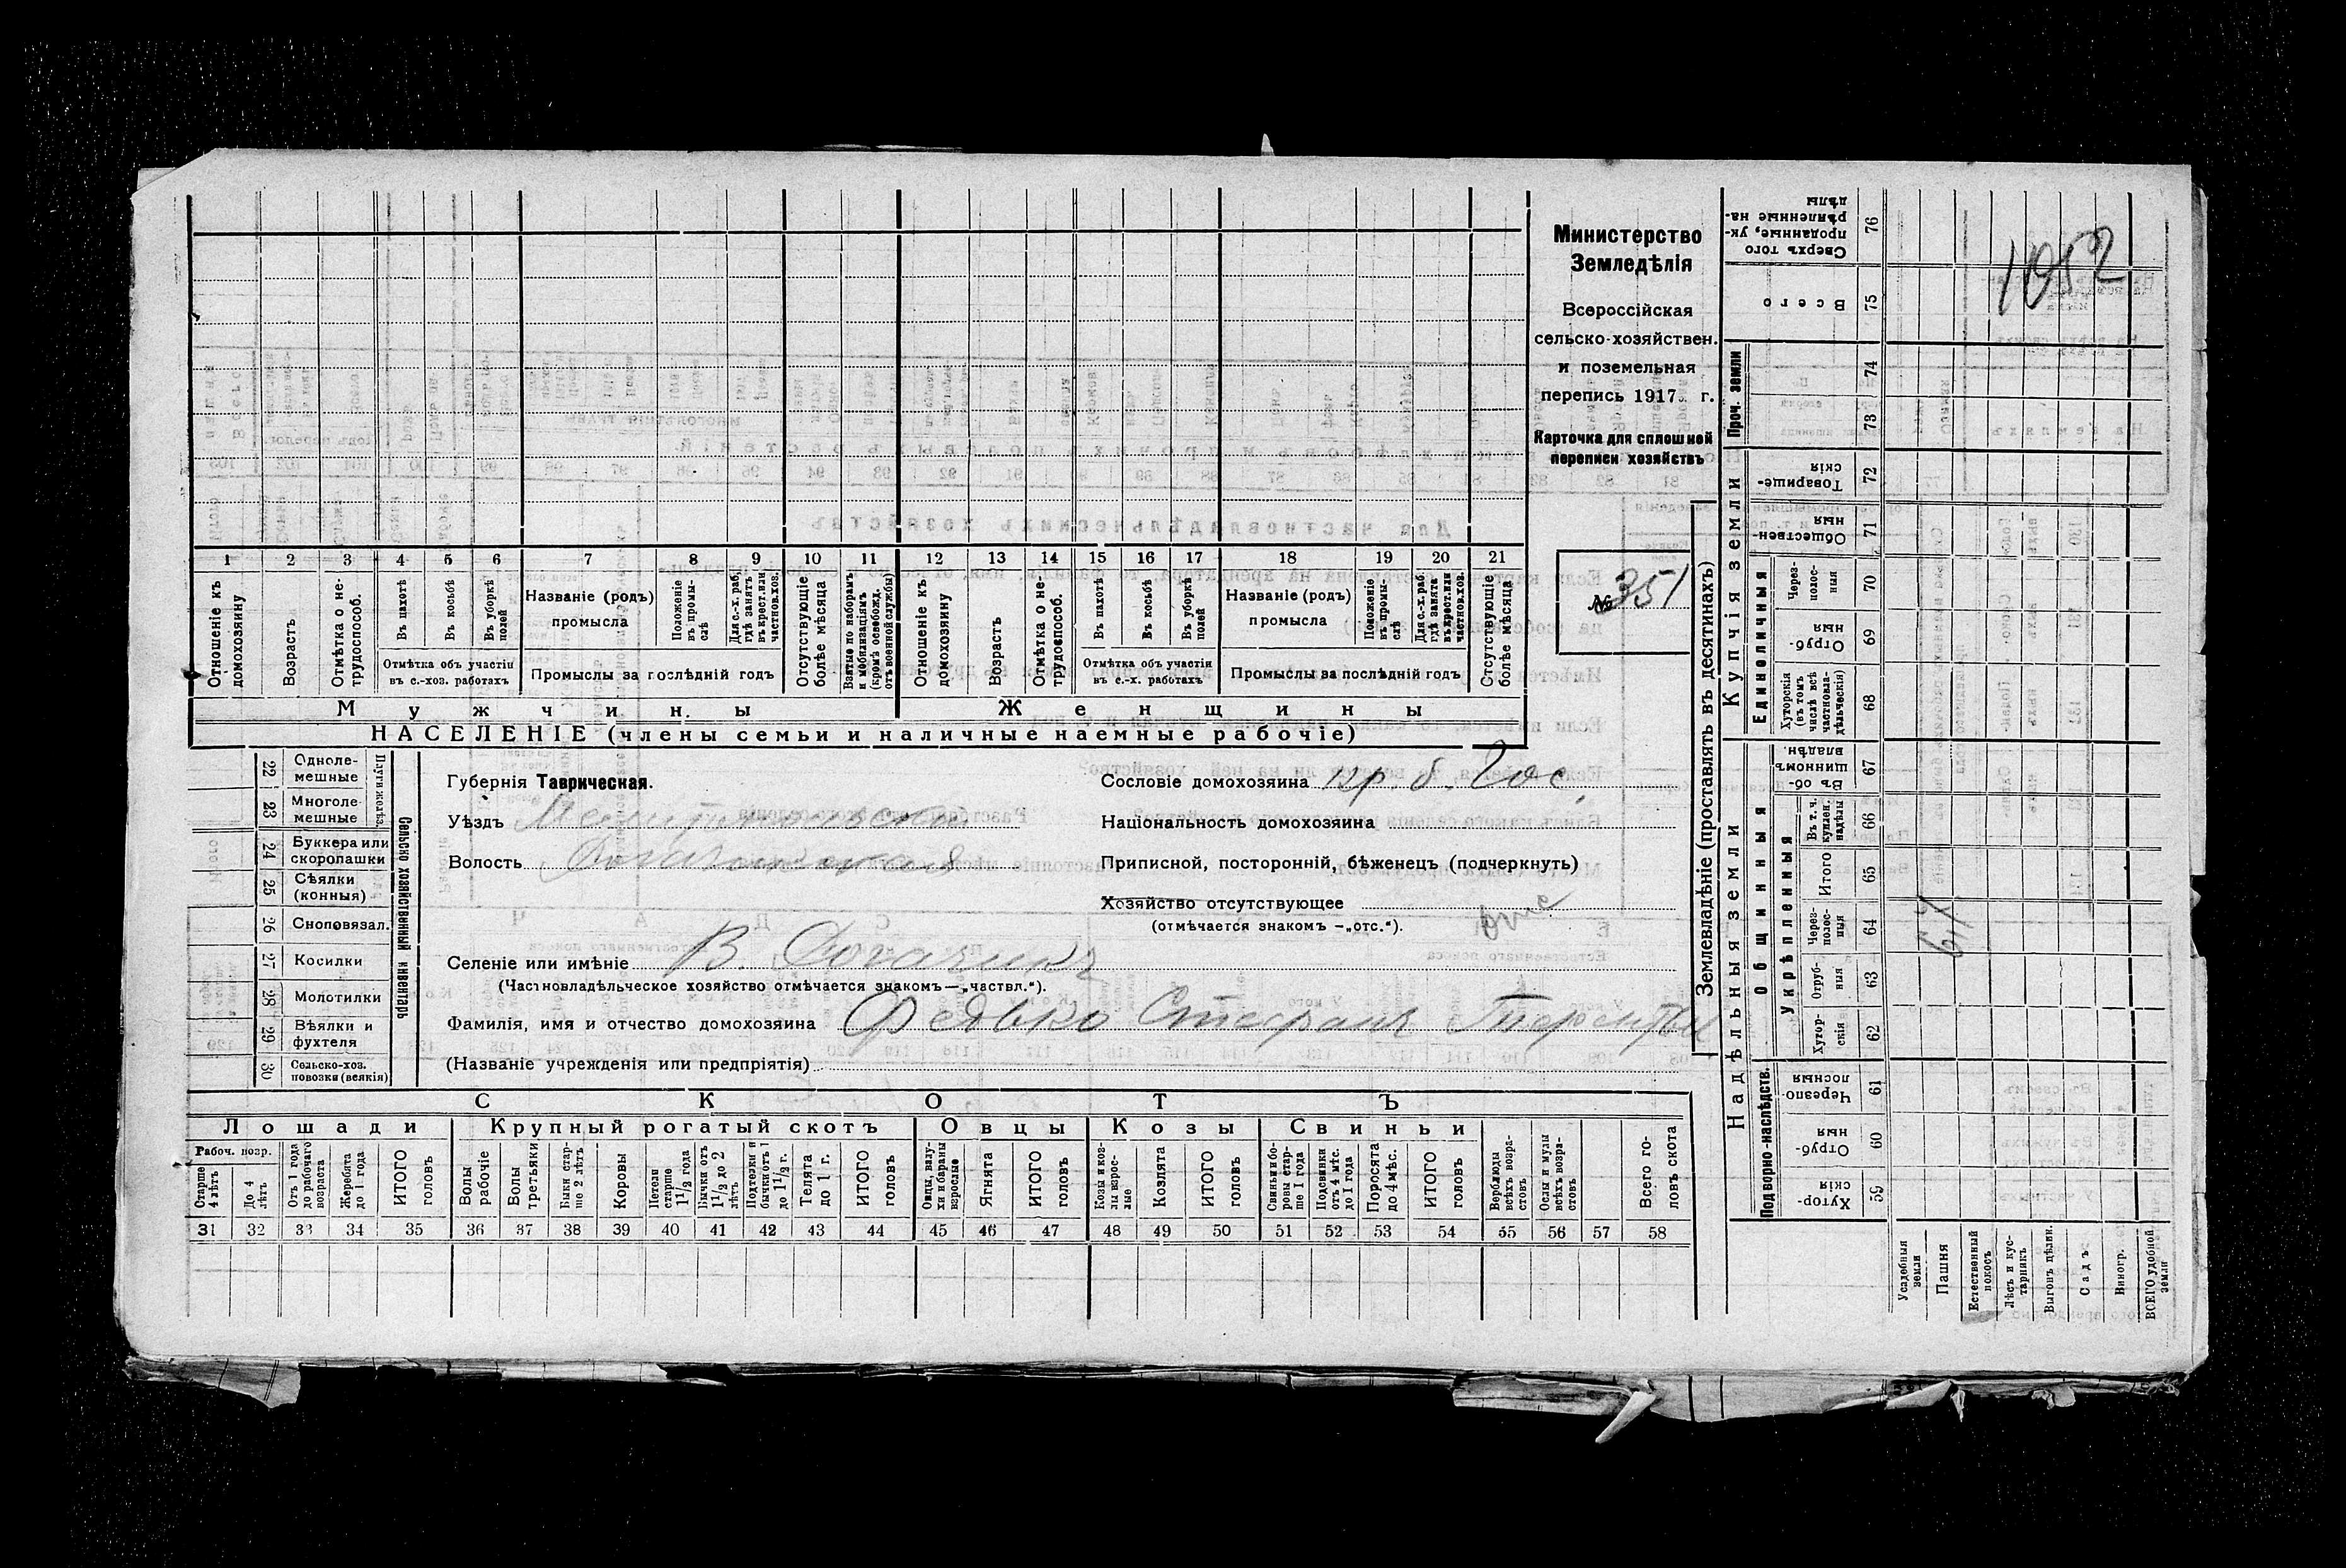 1 2 3 4 5 6 7 8 9 10 11 12 13 14 15 16 17 18 19 20 21
Отношеніе къ домохозяину
Возрастъ
Отмѣтка о не-трудоспособ.
Въ пахотѣ
Въ косьбѣ
Въ уборкѣ полей
Отмѣтка объ участіи въ с.-хоз. работахъ
Названіе (родъ) промысла
Положеніе въ промыслѣ
Для с.-х. раб. гдѣ занятъ въ крест. или частнов. хоз.
Промыслы за послѣдній годъ
Отсутствующіе болѣе мѣсяца
Взятые по наборамъ и мобилизаціямъ (кромѣ освобожд. отъ военной службы)
Отношеніе къ домохозяину
Возрастъ
Отмѣтка о не-трудоспособ.
Въ пахотѣ
Въ косьбѣ
Въ уборкѣ полей
Отмѣтка объ участіи въ с.-х. работахъ
Названіе (родъ) промысла
Положеніе въ промыслѣ
Для с.-х. раб. гдѣ занята въ крест. или частнов. хоз.
Промыслы за послѣдній годъ
Отсутствующіе болѣе мѣсяца
Мужчины. Женщины
НАСЕЛЕНІЕ (члены семьи и наличные наемные рабочіе)
Министерство
Земледѣлія
Всероссійская
сельско-хозяйствен.
и поземельная
перепись 1917 г.
Карточка для сплошной
переписи хозяйствъ
№ 351
22 Одноле-мешные
23 Многоле-мешные
Плуги желѣз.
24 Буккера или скоропашки
25 Сѣялки (конныя)
26 Сноповязал.
27 Косилки
28 Молотилки
29 Вѣялки и фухтеля
30 Сельско-хоз. повозки (всякія)
Сельско хозяйственный инвентарь
Губернія Таврическая.
Уѣздъ Мелитопольскій
Волость
Сословіе домохозяина кр. б. Гос.
Національность домохозяина
Приписной, посторонній, бѣженецъ (подчеркнуть)
Хозяйство отсутствующее отс
(отмѣчается знакомъ —„отс.“).
Селеніе или имѣніе В. Рогачикъ
(Частновладѣльческое хозяйство отмѣчается знакомъ—„частвл.“).
Фамилія, имя и отчество домохозяина Федько Стефанъ
(Названіе учрежденія или предпріятія)
СКОТЪ
Лошади Крупный рогатый скотъ Овцы Козы Свиньи
Рабоч. возр.
Старше 4 лѣтъ
До 4 лѣтъ
Отъ 1 года до рабочаго возраста
Жеребята до 1 года
ИТОГО головъ
Волы рабочіе
Волы третьяки
Быки старше 2 лѣтъ
Коровы
Нетели старше 1 1/2 года
Бычки отъ 1 1/2 до 2 лѣтъ
Подтелки и бычки отъ 1 до 1 1/2 г.
Телята до 1 г.
ИТОГО головъ
Овцы, валухи и бараны взрослые
Ягнята
ИТОГО головъ
Козы и козлы взрослые
Козлята
ИТОГО головъ
Свиньи и боровы старше 1 года
Подсвинки отъ 4 мѣс. до 1 года
Поросята до 4 мѣс.
ИТОГО головъ
Верблюды всѣхъ возрастовъ
Ослы и мулы всѣхъ возрастовъ
Всего головъ скота
31 32 33 34 35 36 37 38 39 40 41 42 43 44 45 46 47 48 49 50 51 52 53 54 55 56 57 58
Землевладѣніе (проставлять въ десятинахъ)
Надѣльныя земли
Подворно-наслѣдств.
Хуторскія 59
Отрубныя 60
Черезполосныя 61
Общинныя
Укрѣпленныя
Хуторскія 62
Отрубныя 63
Черезполосныя 64
Итого 65
Въ т. ч. куплен. надѣлы 66
Въ общинномъ владѣн. 67
Купчія земли
Единоличныя
Хуторскія (въ томъ числѣ всѣ частновладѣльческія) 68
Отрубныя 69
Черезполосныя 70
Общественныя 71
Товарищескія 72
Проч. земли
73 74
Всего 75
Сверхъ того проданные, укрѣпленные надѣлы 76
1052
Усадебныя земли
Пашня
Естественный покосъ
Лѣсъ и кустарникъ
Выгонъ цѣлин.
Садъ
Виногр.
ВСЕГО удобной земли